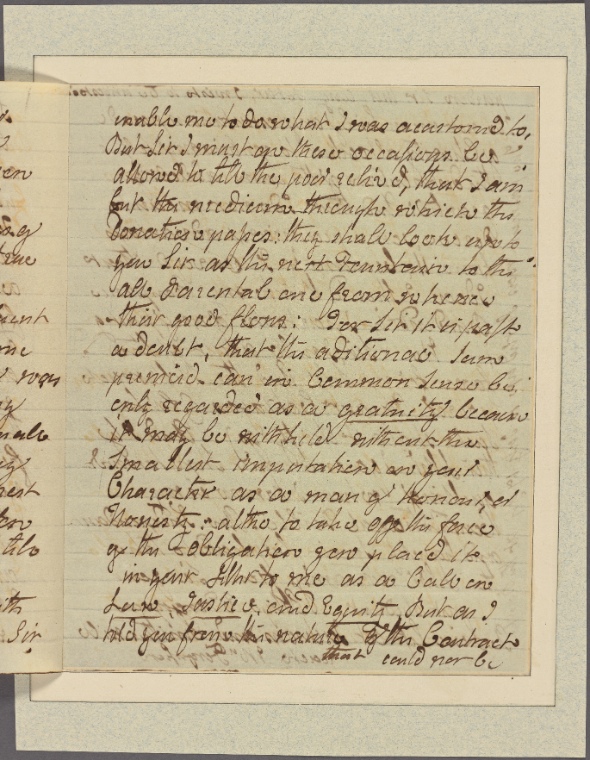 inable me to do what I was acustomed to,
But Sir I must on these occasions be
allowed to tell the poor relived, that I am
but the medicim through which the
donation papes: they shall look up to
you Sir as the next Fountain to the
all Parental one from whence
their good flows: For Sir it is past
a doubt, that the aditional Sum
premised can in Common Sense be
only regarded as a gratuity because
it may be withheld without the
Smallest imputation on your
Character as a man of Honour, &
Honesty: altho to take off the force
of the Obligation you placed it
in your letter to me as a Call on
Law, Justice, and Equity. But as I
told you from the nature of the Contract
that could not be